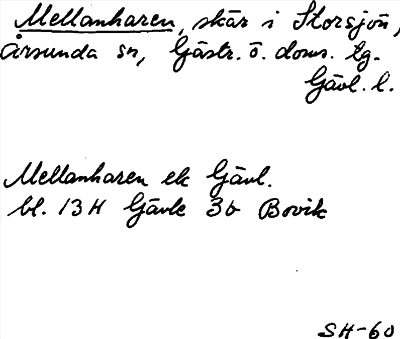 Mellanharen, skär i Storsjön,
Årsunda sn, Gästr. ö. doms. tg.
Gävl. l.
Mellanharen ek Gävl.
bl. 13H Gävle 3b Bovik
SH-60